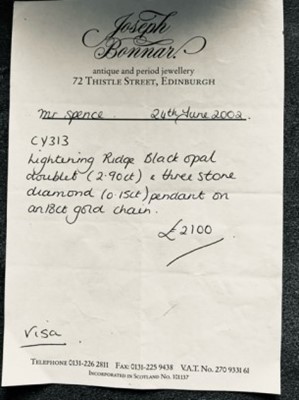 Joseph
Bonnar
antique and period jewellery
72 THISTLE STREET, EDINBURGH
Mr Spence. 24th June 2002.
CY313
Lightening Ridge Black opal
doublet (2.90ct) & three stone
diamond (0.15ct) pendant on
an 18ct gold chain.
£2100
Visa
TELEPHONE 0131-226 2811 FAX: 0131-225 9438 V.A.T. No. 270 9331 61
INCORPORATED IN SCOTLAND No. 101137